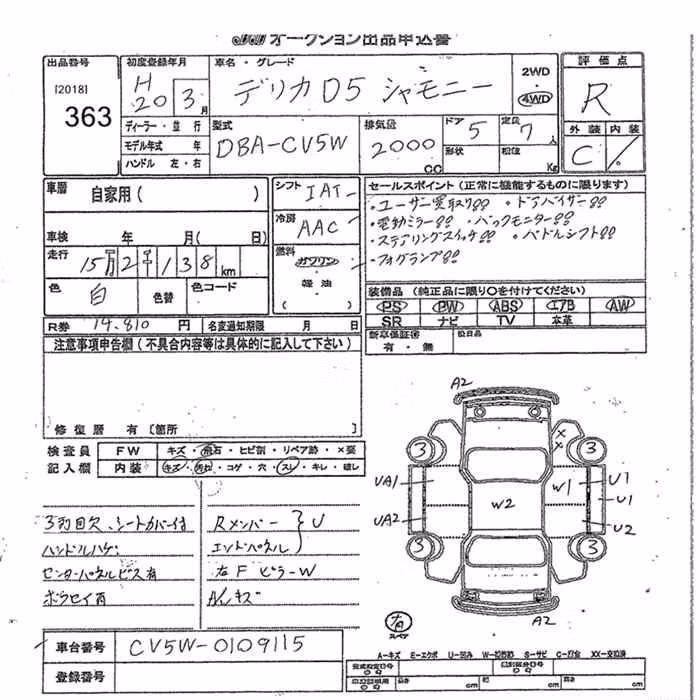 オークション出品申込書
出品番号
[2018]
363
初度登録年月
H
20 3月
ディーラー・並行
モデル年式 年
ハンドル 左・右
車名・グレード
デリカD5 シャモニー
2WD
4WD
型式
DBA-CV5W
排気量
2000
CC
ドア
5
定員
7
人
形状
積位
Kg
評価点
R
外装 内装
C
車歴
自家用( )
車検 年 月( 日)
走行
15万2千138km
色
白
色替
色コード
シフト
IAT
冷房
AAC
燃料
ガソリン
軽油
セールスポイント(正常に機能するものに限ります)
・ユーザー買取り!! ・ドアバイザー!!
・電動ミラー!! ・バックモニター!!
・ステアリングスイッチ!! ・パドルシフト!!
・フォグランプ!!
装備品(純正品に限り○を付けてください)
PS PW ABS エアB AW
SR ナビ TV 本革
新車保証書
有・無
R券 14,810 円
名変通知期限 月 日
注意事項申告欄(不具合内容等は具体的に記入して下さい)
修復歴 有〔箇所
検査員
記入欄
FW キズ・飛石・ヒビ割・リペア跡・×要
内装 キズ・汚れ・コゲ・穴・スレ・キレ・破レ
3列目欠、シートカバー付
ハンドルハゲ
センターパネルビス有
Rメンバー
エンドパネル
U
右FピラーW
AWキズ
A2
3
3
UA1
W2
W1
U1
U1
UA2
U2
3
3
A2
スペア
A-キズ E-エクボ U-凹み S-サビ XX-交換済
車台番号
CV5W-0109115
登録番号
長さ cm
幅 cm
高さ cm